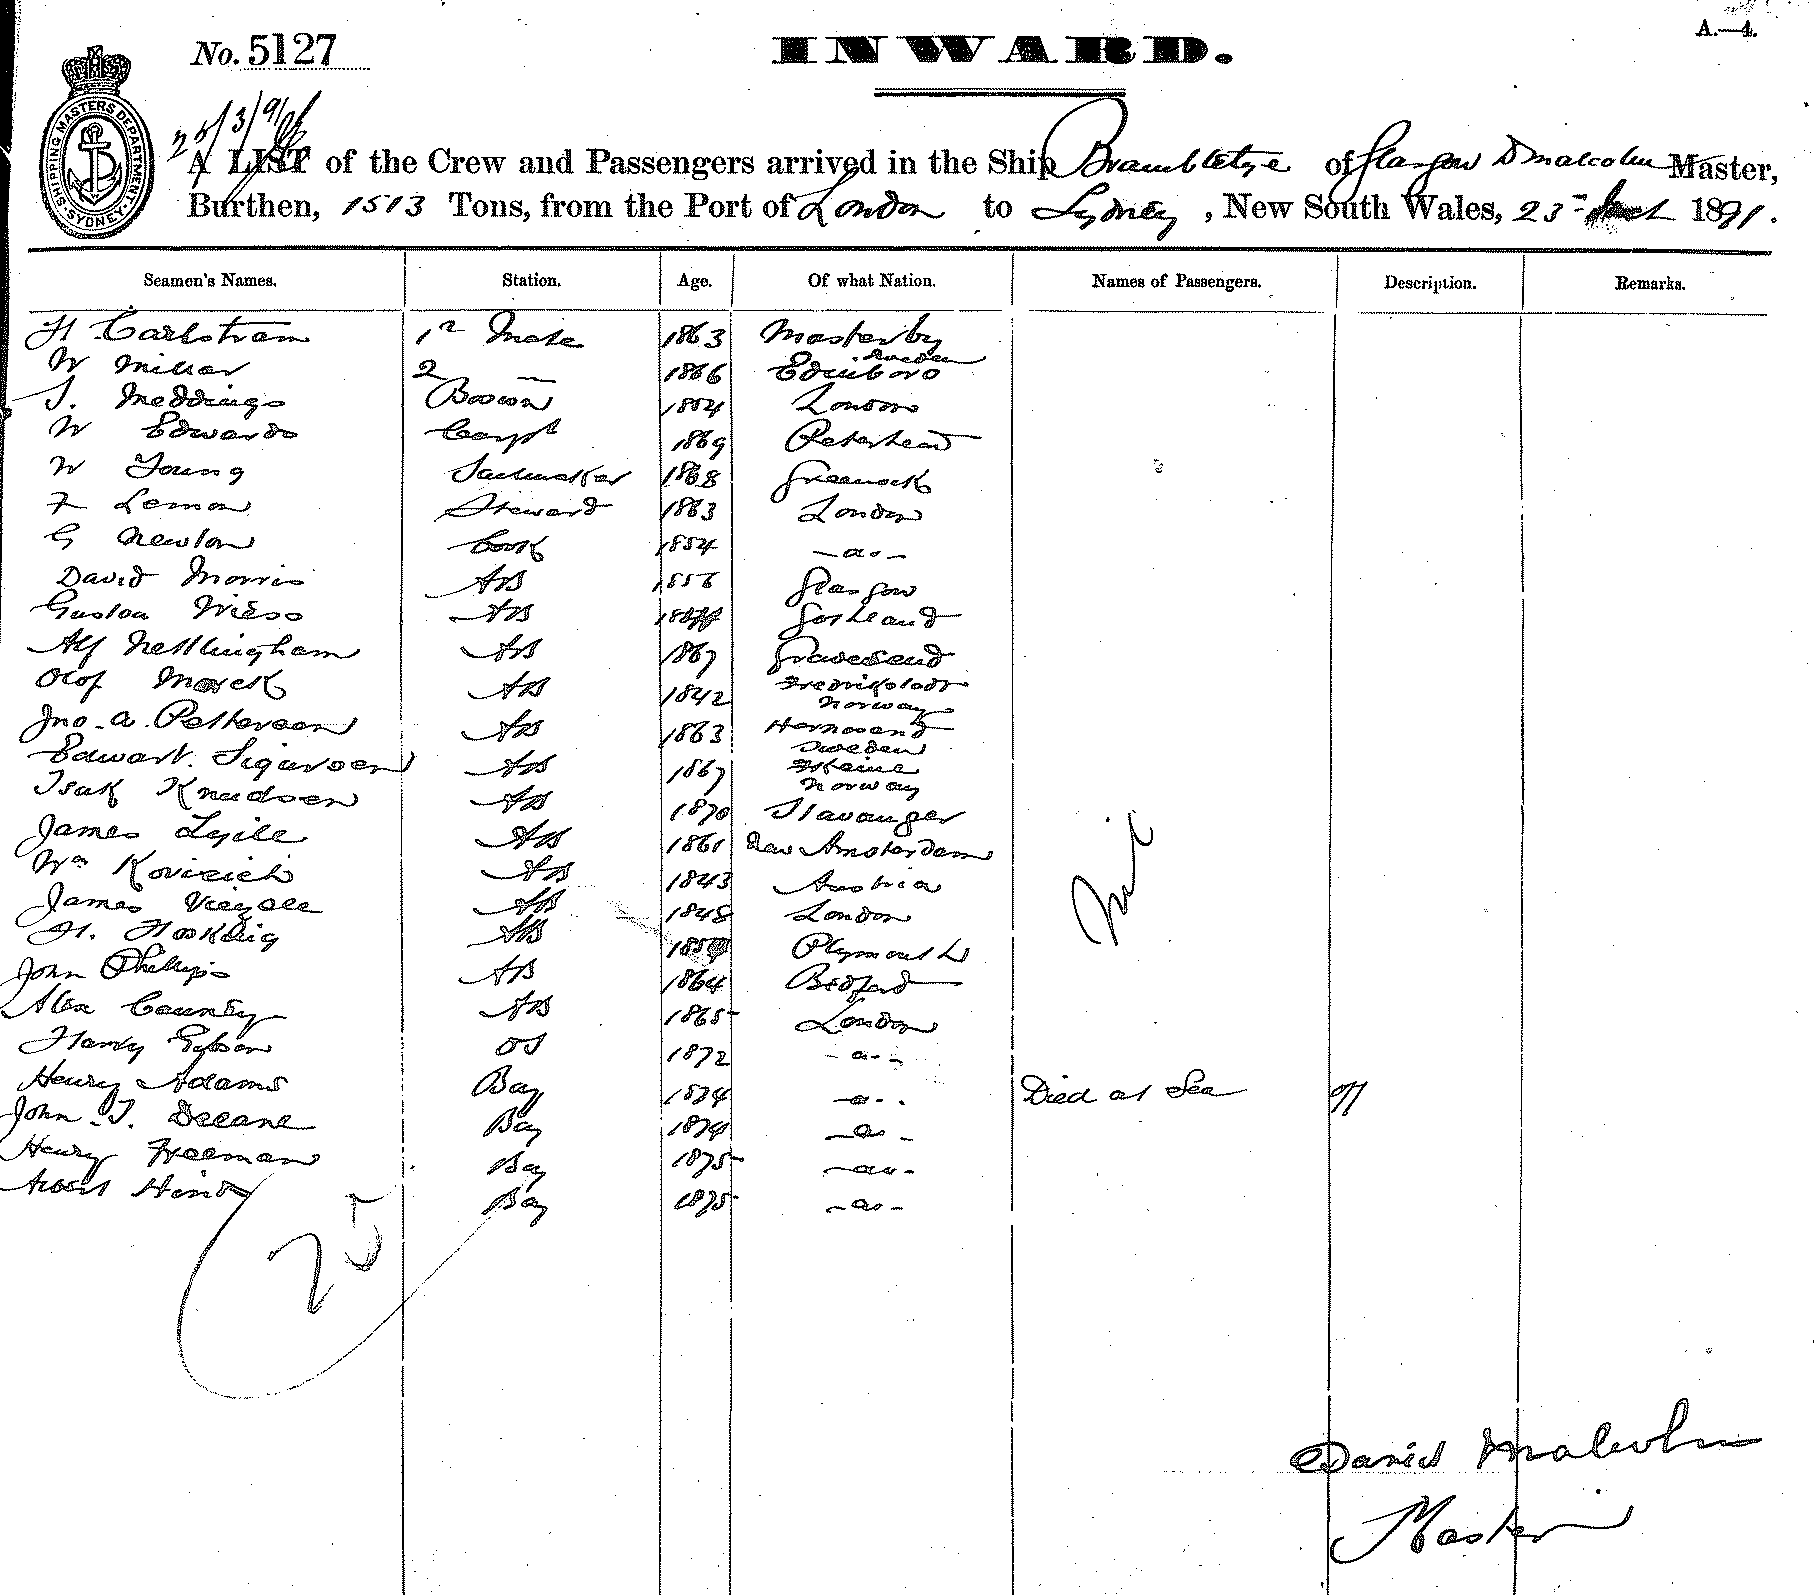 A.—4.
No. 5127
INWARD.
SHIPPING MASTERS DEPARTMENT · SYDNEY ·
25/3/91
A LIST of the Crew and Passengers arrived in the Ship Brambletye of Glasgow D Malcolm Master,
Burthen, 1513 Tons, from the Port of London to Sydney, New South Wales, 23 1891.
Seamen's Names. Station. Age. Of what Nation. Names of Passengers. Description. Remarks.
H Carlstram 1st Mate 1863 Masterby
Sweden
W Millar 2 — 1866 Edinboro
J. Meddings Bosson 1854 London
W Edwards Carpt 1869 Peterhead
W Young Sailmaker 1868 Greenock
F Lemon Steward 1863 London
G Newton Cook 1854 — a. —
David Morris AB 1856 Glasgow
Gustav Wiess AB Gothland
Alf Nettlingham AB 1867 Gravesend
Olof AB 1842 Fredrikstadt
Norway
Jno. A. Petterson AB 1863 Hernosand
Sweden
Edwart. Sigursen AB 1867
Norway
Isak Knudsen AB 1870 Stavanger
James Lyile AB 1861 New Amsterdam
Wm AB 1843 Austria
James AB 1848 London
H. Hosking AB Plymouth
John Phillips AB 1864 Bedford
Alex AB 1865 London
Nil
OS 1872 - a. -
Henry Adams Boy 1874 — a. . Died at Sea
John. T. Deeane Boy 1874 — a. -
Henry Freeman Boy 1875 — a. -
Hind Boy 1875 — a. -
25
David Malcolm
Master